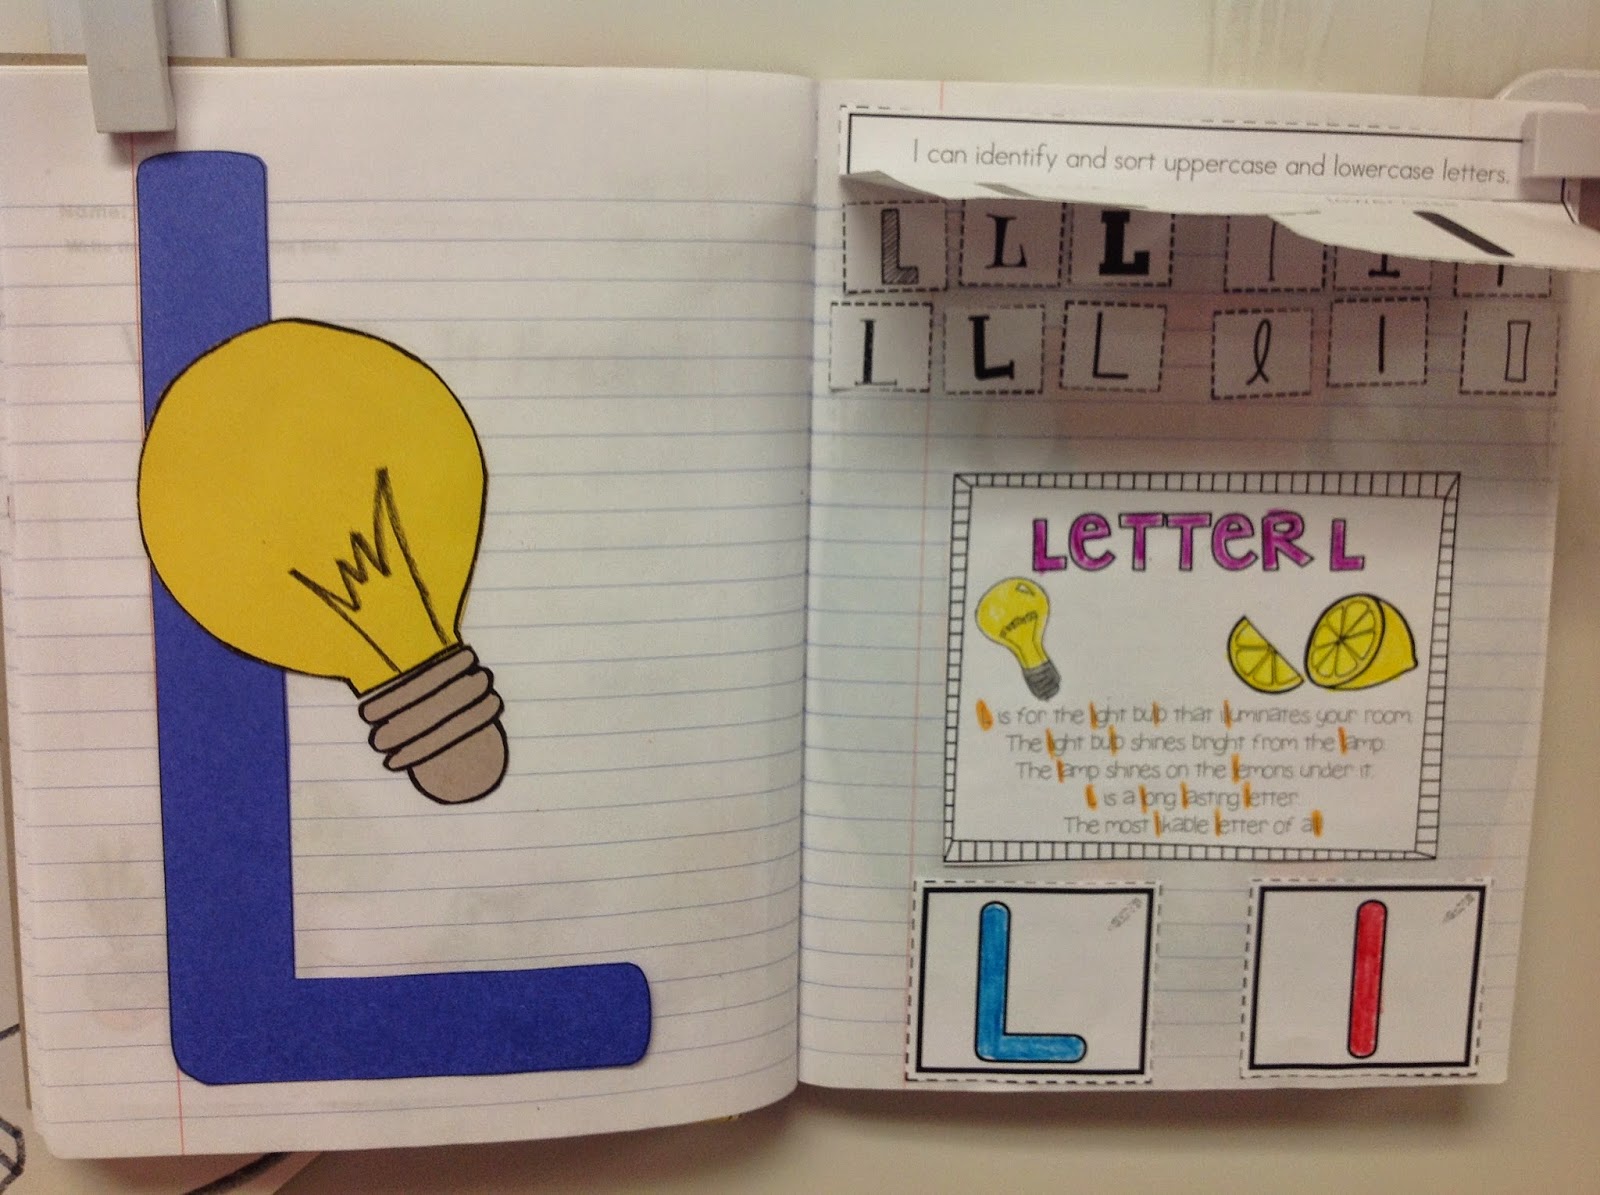 I can identify and sort uppercase and lowercase letters.
L L L l l l
L L L l l l
LETTER L
L is for the light bulb that illuminates your room.
The light bulb shines bright from the lamp.
The lamp shines on the lemons under it.
L is a long lasting letter.
The most likable letter of all
L l